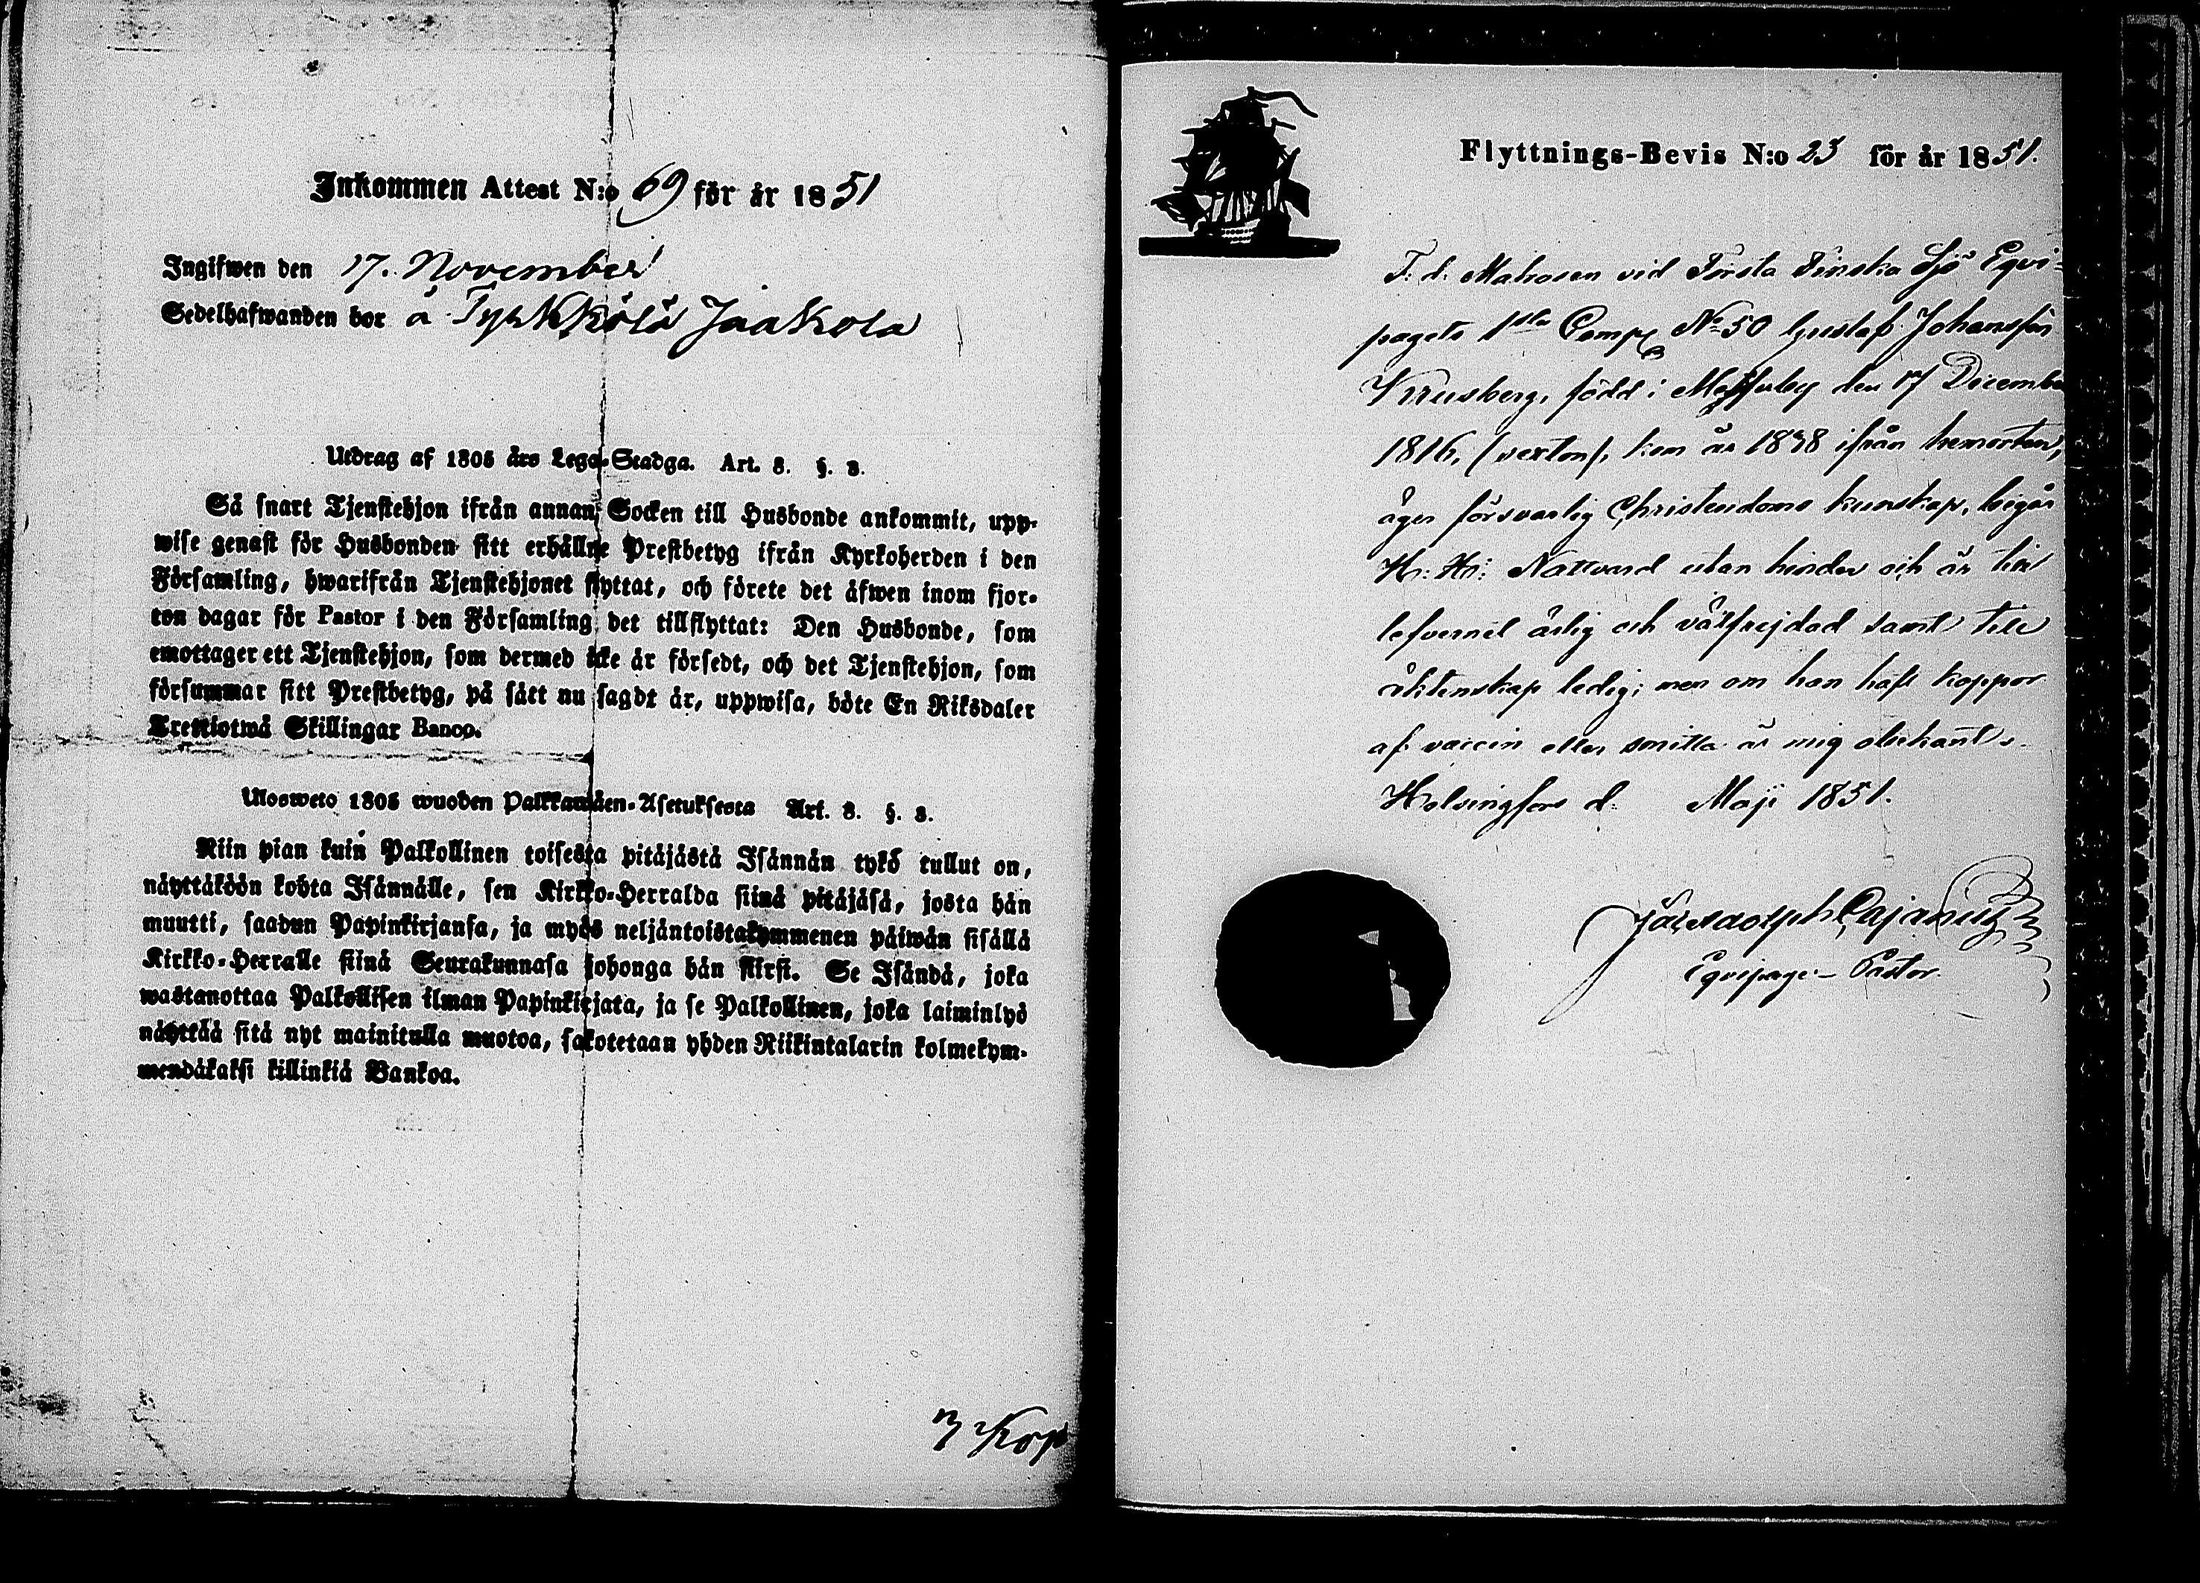 Inkommen Attest N:o 69 för år 1851
Ingifwen den 17. November
Sedelhafwanden bor å Tyrkkölä Jaakola
Utdrag af 1805 års Lego-Stadga. Art. 3. §. 3.
Så snart Tjenstehjon ifrån annan Socken till Husbonde ankommit, upp-
wise genast för Husbonden sitt erhållne Prestbetyg ifrån Kyrkoherden i den
Församling, hwarifrån Tjenstehjonet flyttat, och förete det äfwen inom fjor-
ton dagar för Pastor i den Församling det tillflyttat: Den Husbonde, som
emottager ett Tjenstehjon, som dermed icke är försedt, och det Tjenstehjon, som
försummar sitt Prestbetyg, på sätt nu sagdt är, uppwisa, böte En Riksdaler
Trettiotwå Skillingar Banco.
Ulosweto 1805 wuoden Palkkawäen-Asetuksesta Art. 3. §. 3.
Niin pian kuin Palkollinen toisesta pitäjästä Isännän tykö tullut on,
näyttäköön kohta Isännälle, sen Kirkko-Herralda siinä pitäjäsä, josta hän
muutti, saadun Papinkirjansa, ja myös neljäntoistakymmenen päiwän sisällä
Kirkko-Herralle siinä Seurakunnasa johonga hän siirsi. Se Isändä, joka
wastanottaa Palkollisen ilman Papinkirjata, ja se Palkollinen, joka laiminlyö
näyttää sitä nyt mainitulla muotoa, sakotetaan yhden Riikintalarin kolmekym-
mendäkaksi killinkiä Bankoa.
3 Kop
Flyttnings-Bevis N:o 23 för år 1851.
F. d. Matrosen vid Första Finska Sjö Eqvi-
pagets 1sta Comp N:o 50 Gustaf Johansson
Krusberg, född i Messuby den 17 December
1816, kom år 1838 ifrån hemorten,
äger försvarlig Christendoms kunskap, begår
H. H. Nattvard utan hinder och är till
lefvernet ärlig och välfrejdad samt till
äktenskap ledig; men om han haft koppor
af vaccin eller smitta är mig obekant.
Helsingfors d: Maji 1851.
Adolph Cajanus
Eqvipage-Pastor.